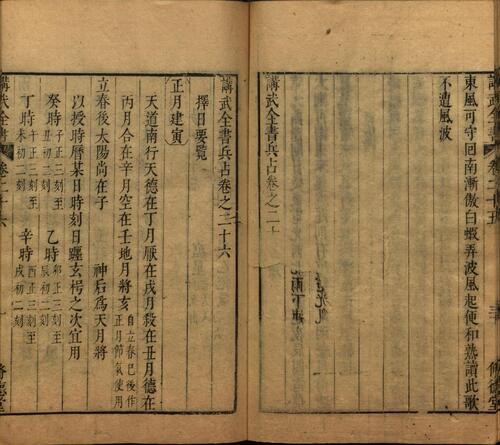 東風可守回南漸傲白蝦弄波風起便和熟讀此歌
不遭風波
講武全書兵占卷之二十
講武全書兵占卷之二十六
擇日要覽
正月建寅
天道南行天德在丁月厭在戌月殺在丑月德在
丙月合在辛月空在壬地月將亥自立春巳後作正月節氣使用
立春後太陽尚在子 神后為天月將
以授時曆某日時刻日躔玄枵之次宜用
癸時子正三刻至丑初二刻 乙時卯正三刻至辰初二刻
丁時午正三刻至未初二刻 辛時酉正三刻至戌初二刻
講武全書 卷二十六